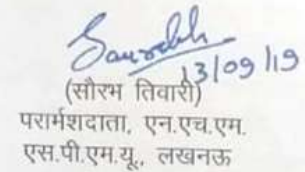 Saurabh
13/09/19
(सौरभ तिवारी)
परार्मशदाता, एन.एच.एम.
एस.पी.एम.यू., लखनऊ